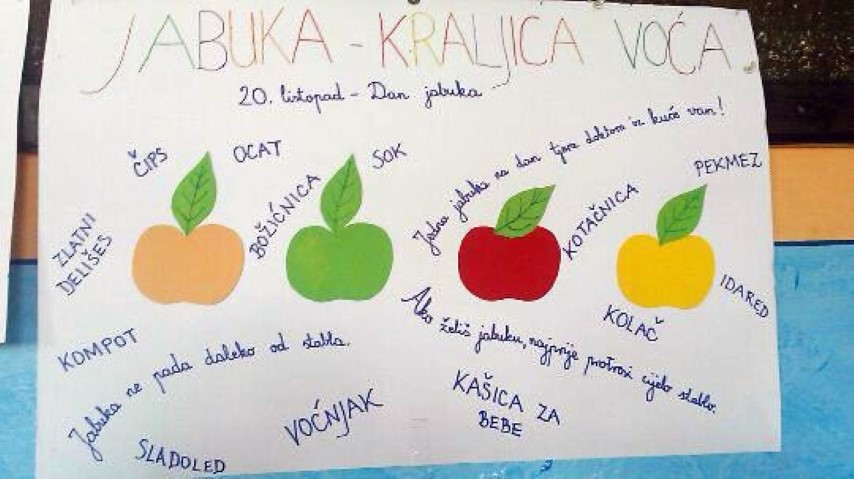 JABUKA - KRALJICA VOĆA
20. listopad - Dan jabuka
ČIPS
OCAT
SOK
Jedna jabuka na dan tjera doktora iz kuće van!
PEKMEZ
ZLATNI
DELIŠES
BOŽIĆNICA
KOTAČNICA
IDARED
KOLAČ
KOMPOT
Jabuka ne pada daleko od stabla.
Ako želiš jabuku, najprije protresi cijelo stablo.
VOĆNJAK
KAŠICA ZA
BEBE
SLADOLED